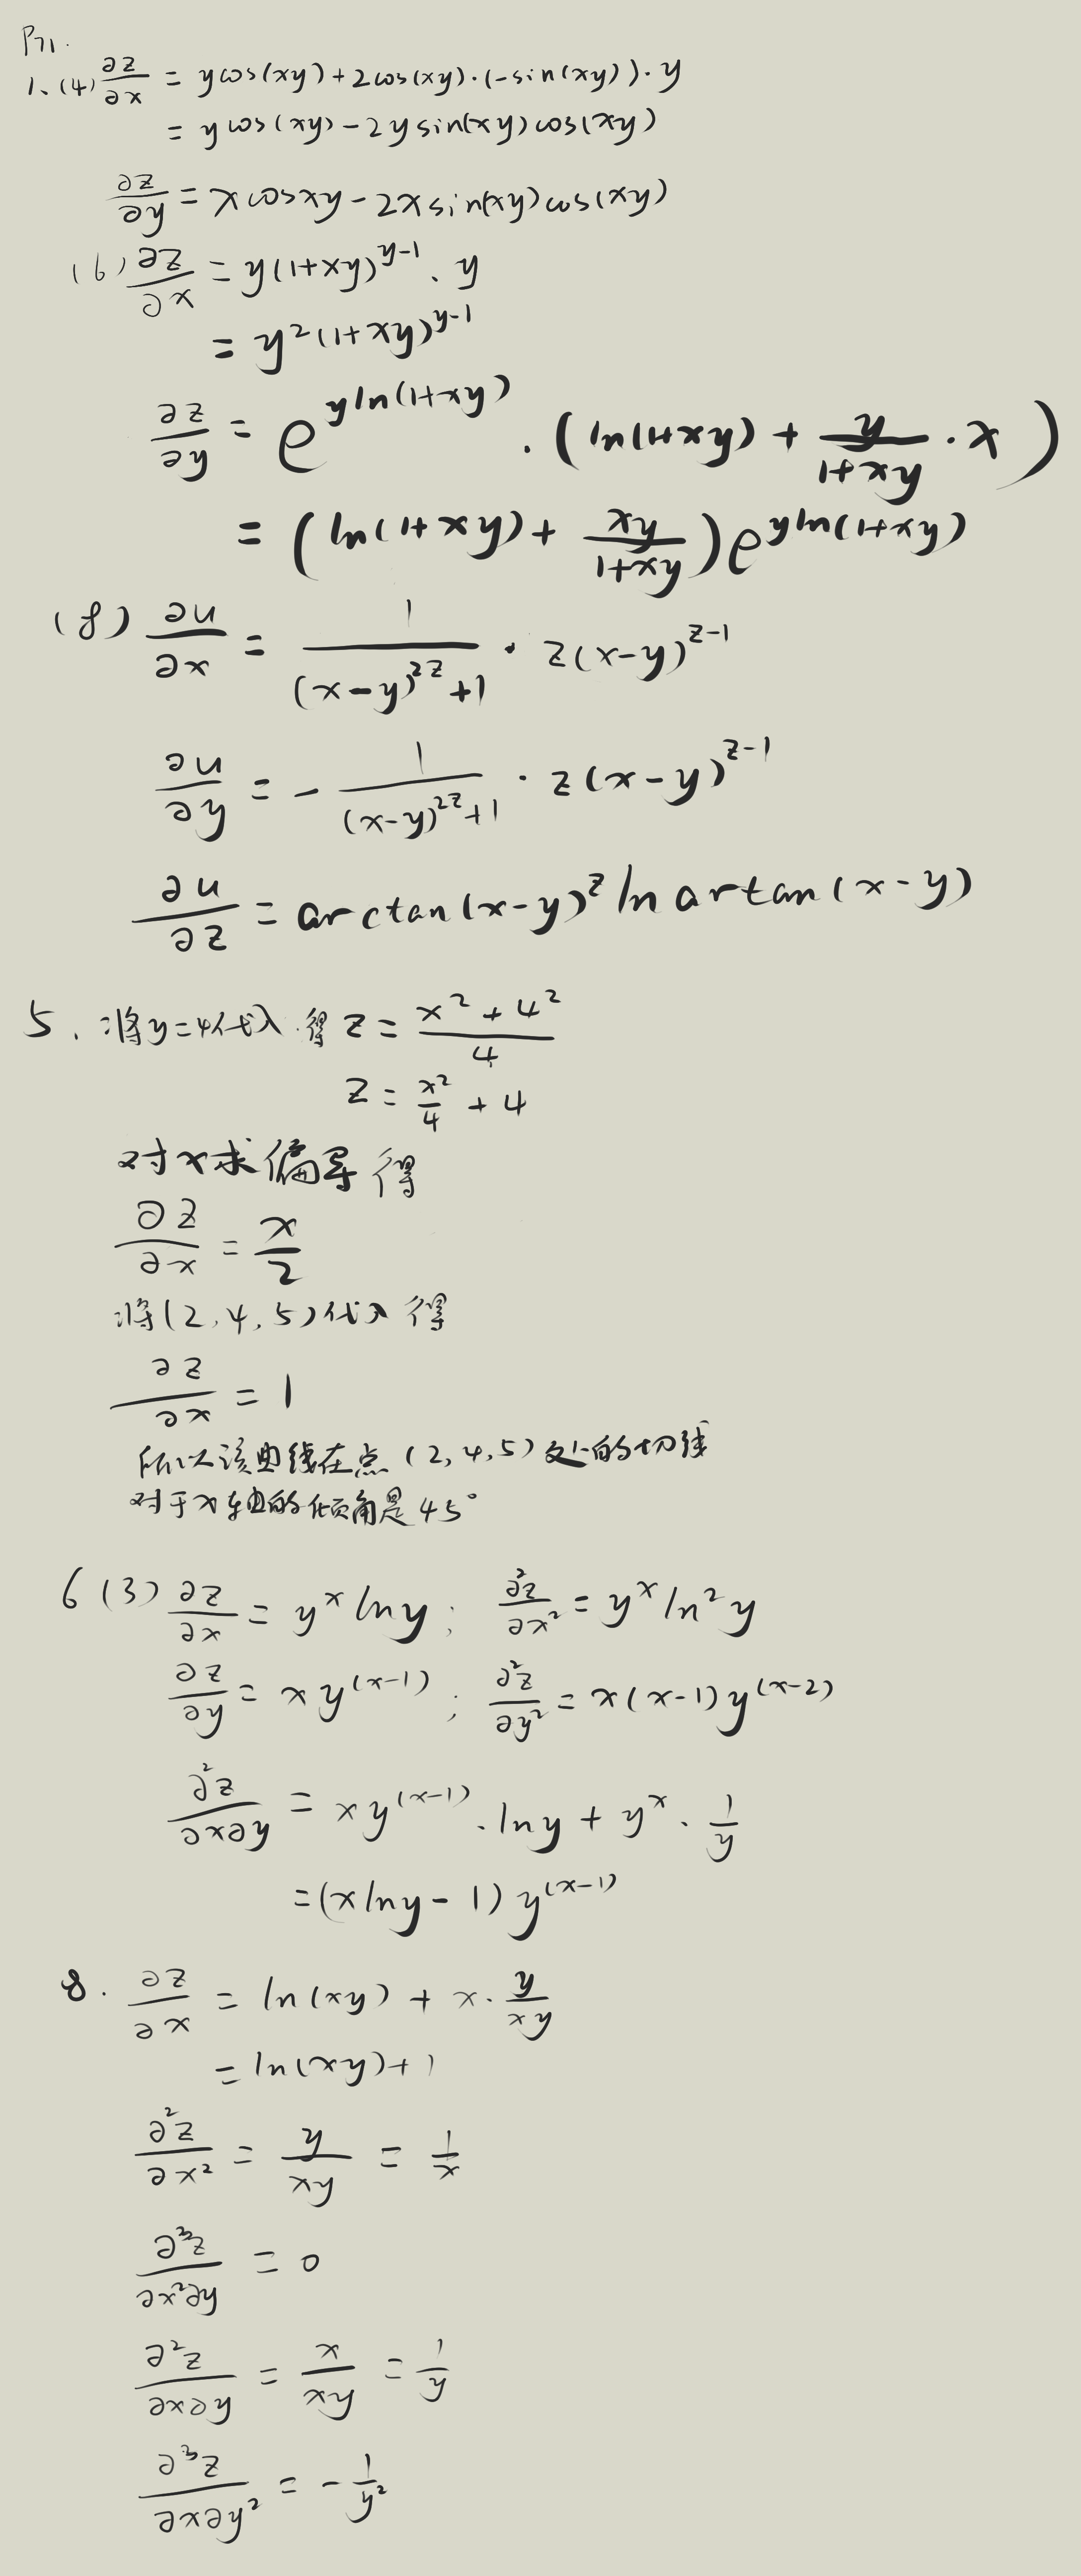 P71.
1、(4) ∂z/∂x = y cos(xy) + 2cos(xy)·(-sin(xy))·y
= y cos(xy) - 2y sin(xy) cos(xy)
∂z/∂y = x cos xy - 2x sin(xy) cos(xy)
(6) ∂z/∂x = y(1+xy)^{y-1}·y
= y²(1+xy)^{y-1}
∂z/∂y = e^{y ln(1+xy)}·(ln(1+xy) + y/(1+xy)·x)
= (ln(1+xy) + xy/(1+xy)) e^{y ln(1+xy)}
(8) ∂u/∂x = 1/((x-y)^{2z}+1)·z(x-y)^{z-1}
∂u/∂y = - 1/((x-y)^{2z}+1)·z(x-y)^{z-1}
∂u/∂z = arctan(x-y)^z ln artan(x-y)
5. 将y=4代入.得 z = (x²+4²)/4
z = x²/4 + 4
对x求偏导得
∂z/∂x = x/2
将(2,4,5)代入得
∂z/∂x = 1
所以该曲线在点(2,4,5)处的切线
对于x轴的倾角是45°
6 (3) ∂z/∂x = y^x ln y ; ∂²z/∂x² = y^x ln² y
∂z/∂y = x y^{(x-1)} ; ∂²z/∂y² = x(x-1) y^{(x-2)}
∂²z/∂x∂y = x y^{(x-1)}·ln y + y^x·1/y
= (x ln y - 1) y^{(x-1)}
8. ∂z/∂x = ln(xy) + x·y/xy
= ln(xy) + 1
∂²z/∂x² = y/xy = 1/x
∂³z/∂x²∂y = 0
∂²z/∂x∂y = x/xy = 1/y
∂³z/∂x∂y² = - 1/y²